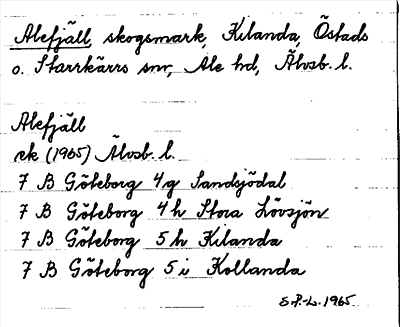 Alefjäll, skogsmark, Kilanda, Östads
o. Starrkärrs snr, Ale hd, Älvsb. l.
Alefjäll
ek (1965) Älvsb. l.
7 B Göteborg 4g Sandsjödal
7 B Göteborg 4h Stora Lövsjön
7 B Göteborg 5h Kilanda
7 B Göteborg 5i Kollanda
S.P.-L. 1965